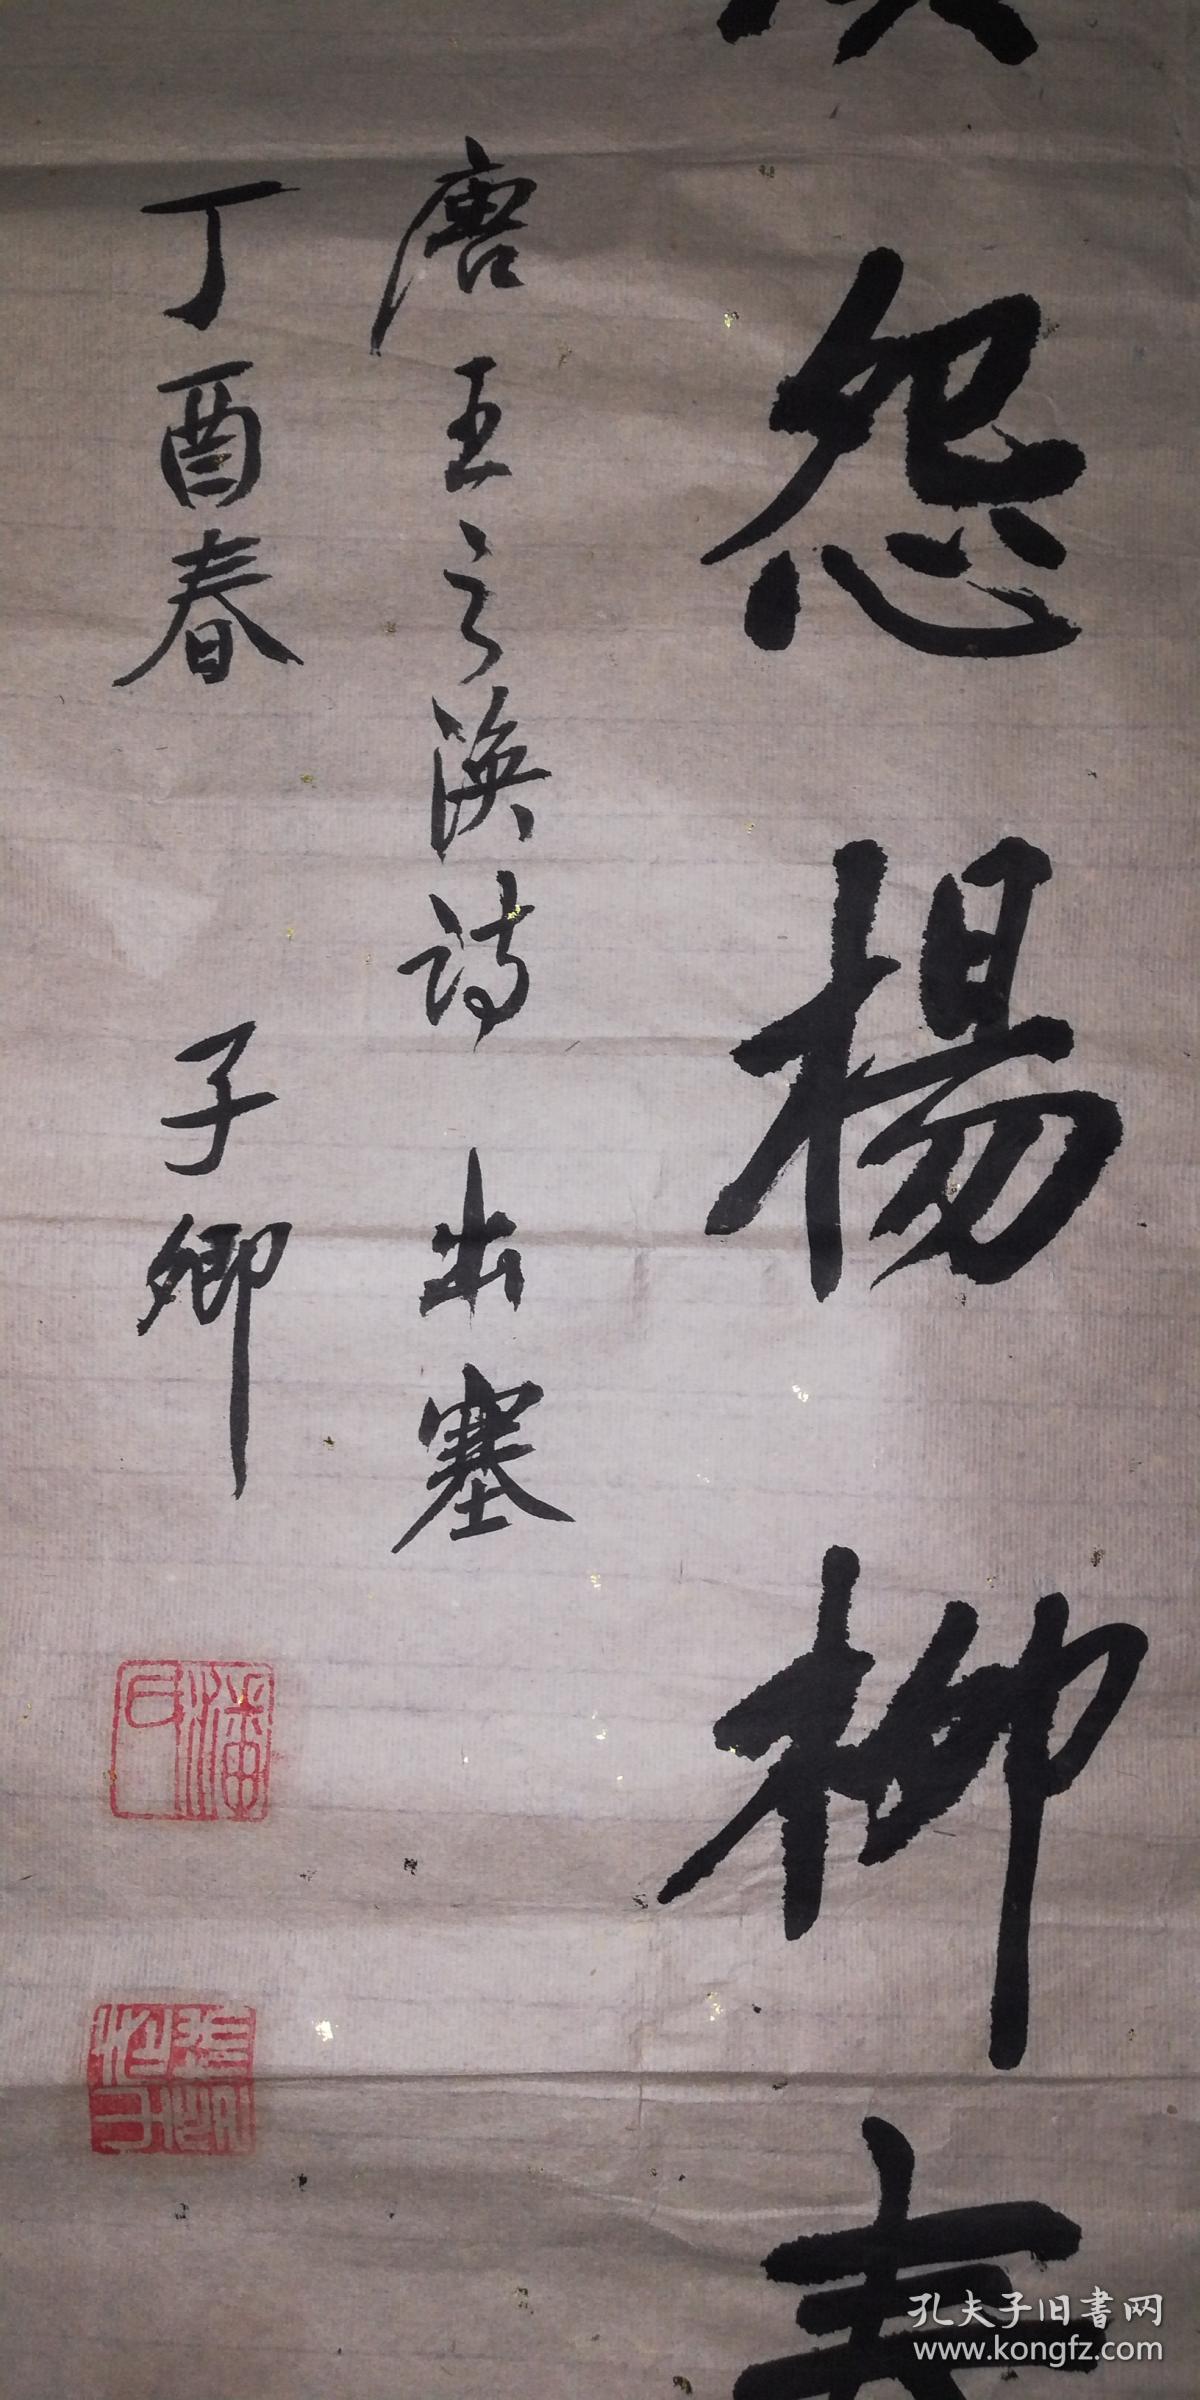 怨楊柳春
唐王之渙詩 出塞
丁酉春 子卿
潘
孔夫子旧書网
www.kongfz.com